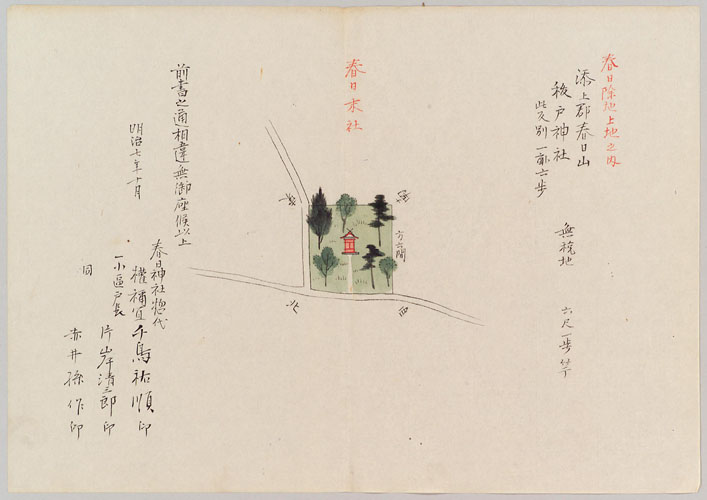 春日除地上地之内
添上郡春日山
祓戸神社
此反別一畝六歩
無税地
六尺一歩竿
春日末社
南
方六間
東
西
北
前書之通相違無御座候以上
明治七年十月
春日神社惣代
権禰宜千鳥祐順 印
一小區戸長
片岸清三郎 印
同
赤井孫作 印